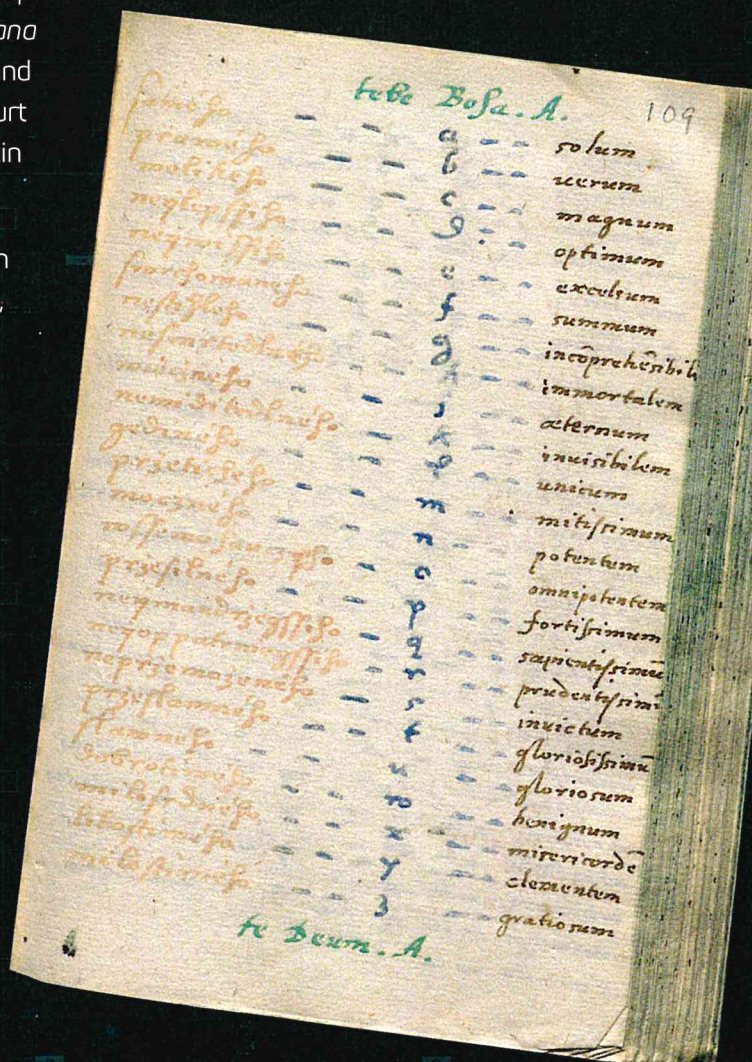 ana
nd
urt
in
n
tebe Boha. A. 109
samého a solum
prawého b uerum
welikého c magnum
neylepssiho d optimum
neywissiho e excelsum
swrchowaného f summum
nestihleho g incōprehēsibil
nesmrtedlného immortalem
wiečného i æternum
newiditedlného k inuisibilem
gediného unicum
przetichého m mitissimum
moczného n potentem
wssemohauczyho o omnipotentem
przesilného p fortissimum
neymaudrzeyssiho q sapientissimū
neyoppatrnieyssiho prudentissimū
neprzemozeného s inuictum
przeslawného t gloriosissimū
slawného u gloriosum
dobrotiwého w benignum
milosrdného x misericordē
litostiwého y clementem
milostiwého z gratiosum
te Deum. A.